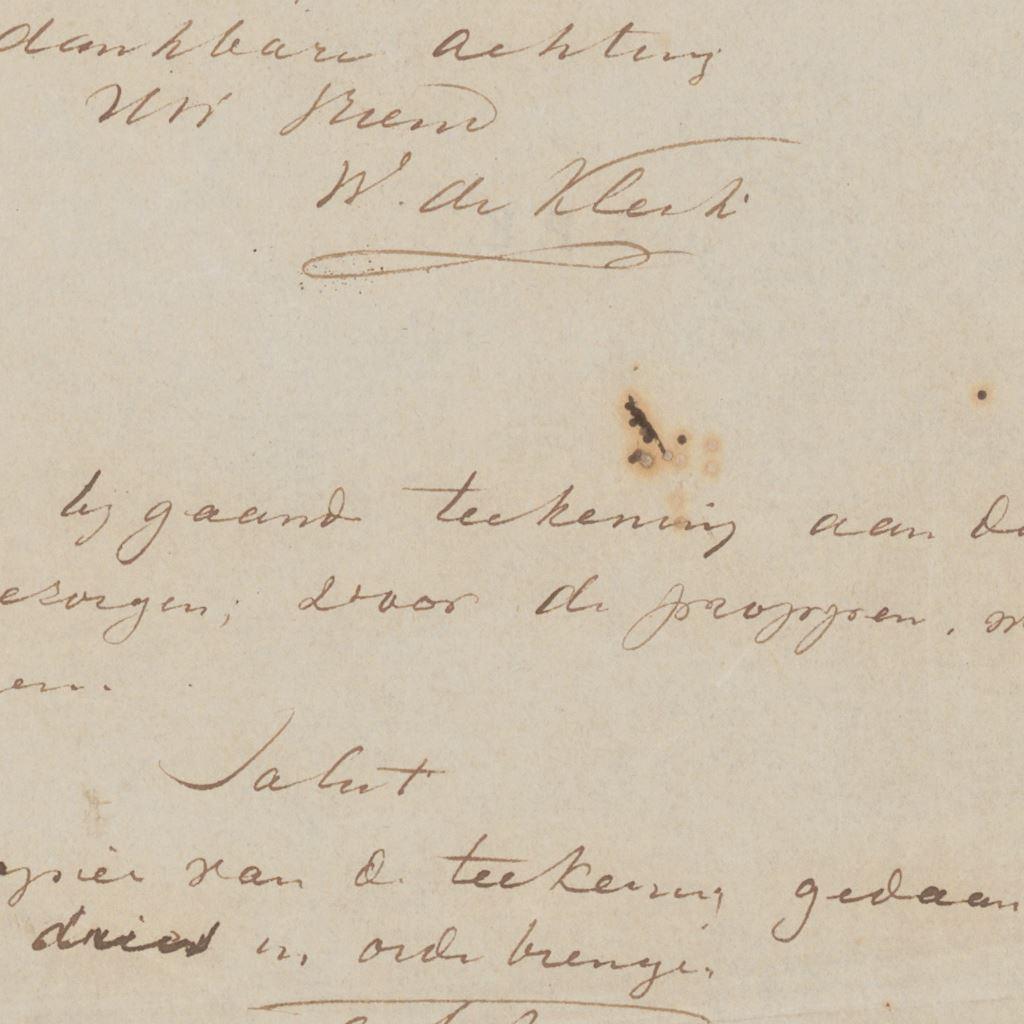 dankbare achting
Uw Vriend
W. de Klerk
bygaand teekening aan de
ezorgen; voor de proppen, m
en.
Salut
pier van de teekening gedaan
in orde brenge.